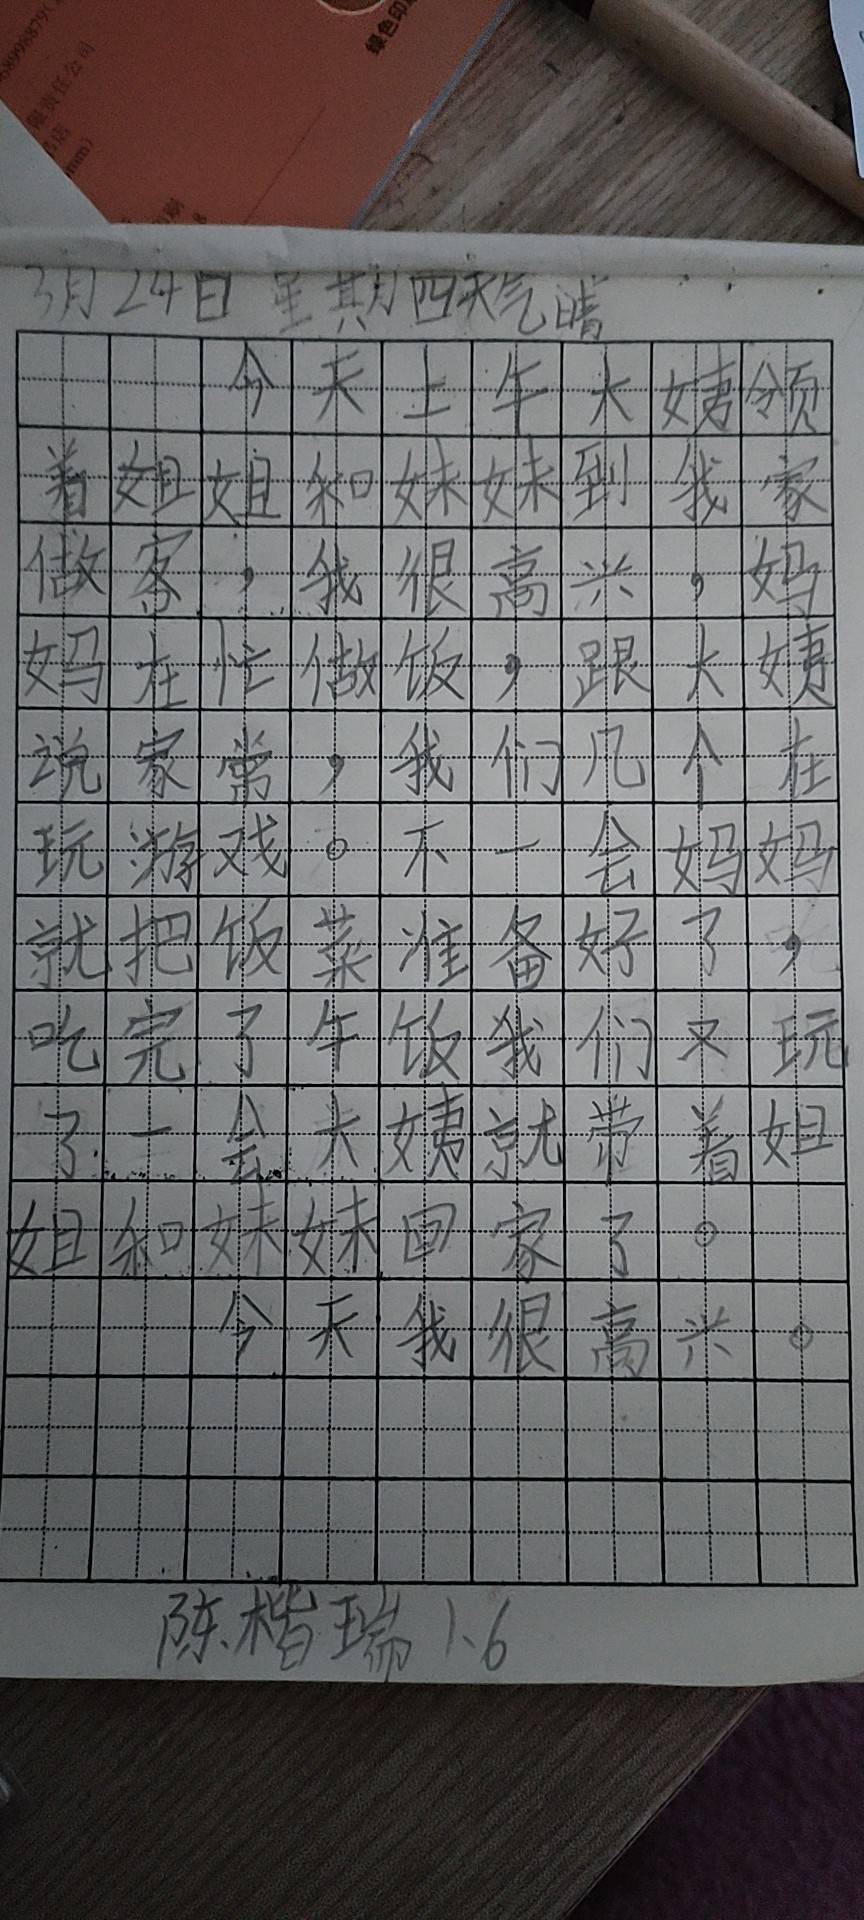 绿色印
68998879
限责任公司
mm)
3月24日 星期四天气晴
今天上午大姨领
着姐姐和妹妹到我家
做客，我很高兴，妈
妈在忙做饭，跟大姨
说家常，我们几个在
玩游戏。不一会妈妈
就把饭菜准备好了，
吃完了午饭我们又玩
了一会大姨就带着姐
姐和妹妹回家了。
今天我很高兴。
陈楷瑞 1.6